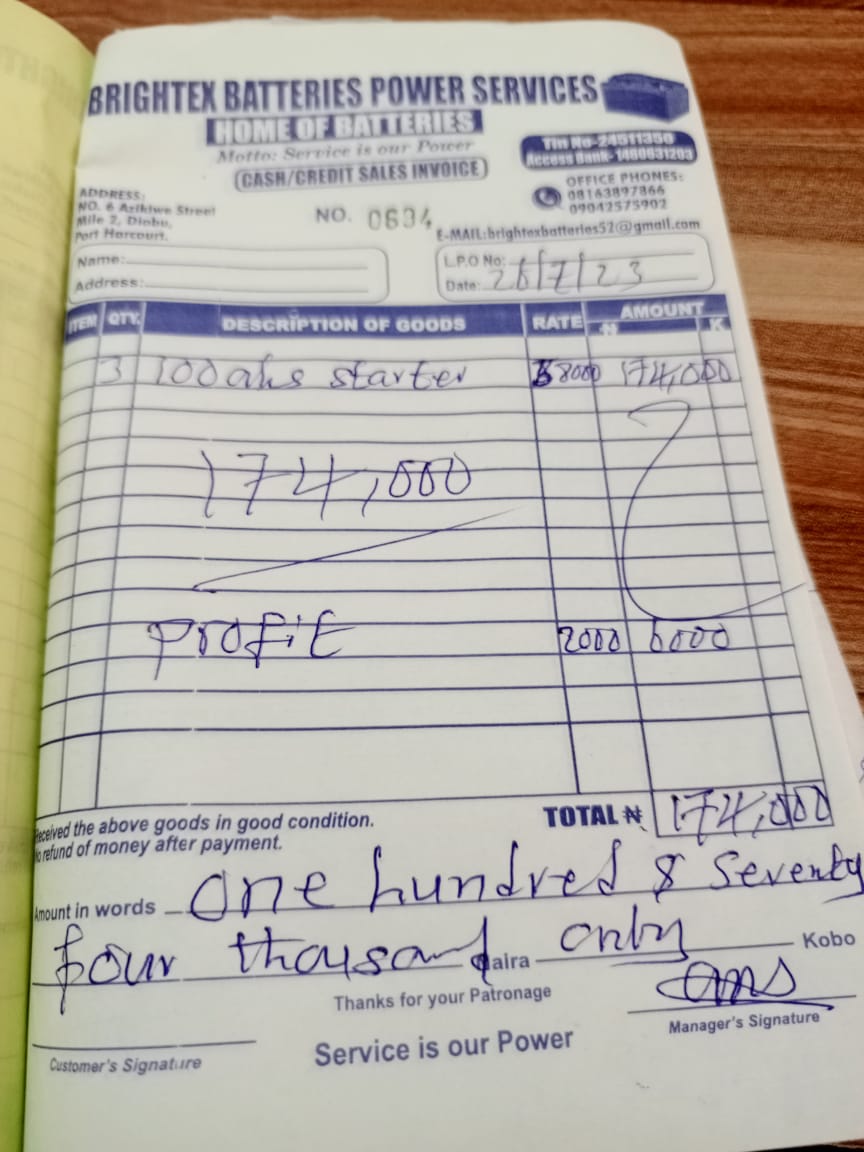 BRIGHTEX BATTERIES POWER SERVICES
HOME OF BATTERIES
Motto: Service is our Power
(CASH/CREDIT SALES INVOICE)
Tin No-24511350
Access Bank-1480631203
ADDRESS:
NO. 6 Azikiwe Street
Mile 2, Diobu,
Port Harcourt.
NO. 0634
OFFICE PHONES:
08163897866
09042575902
E-MAIL:brightexbatteries52@gmail.com
Name:
Address:
L.P.O No:
Date: 26/7/23
ITEM QTY. DESCRIPTION OF GOODS RATE AMOUNT
₦ K
3 100ahs starter 58000 174,000
174,000
Profit 2000 6000
TOTAL ₦ 174,000
Received the above goods in good condition.
No refund of money after payment.
Amount in words One hundred & Seventy
four thousand Naira only Kobo
Thanks for your Patronage
Manager's Signature
Customer's Signature
Service is our Power